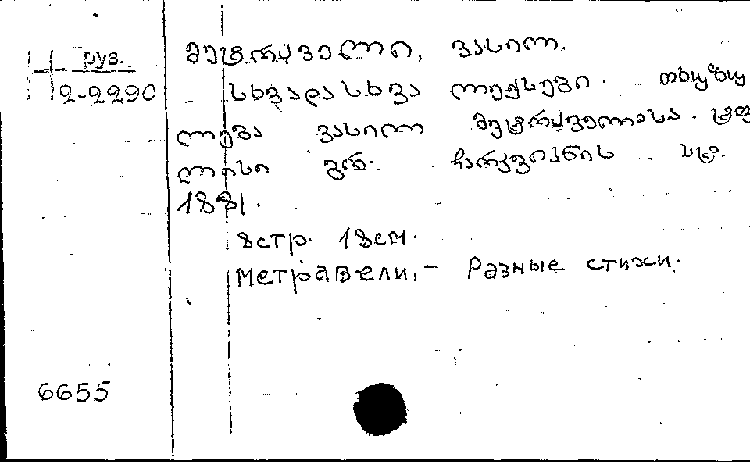 руз.
2-2290
მეტრეველი, ვასილ.
სხვადასხვა ლექსები. თხზუ
ლება ვასილ მეტრეველისა. ტფ
ლისი გრ. ჩარკვიანის სტ.
1881.
8стр. 18см.
Метравели,- Разные стихи.
6655